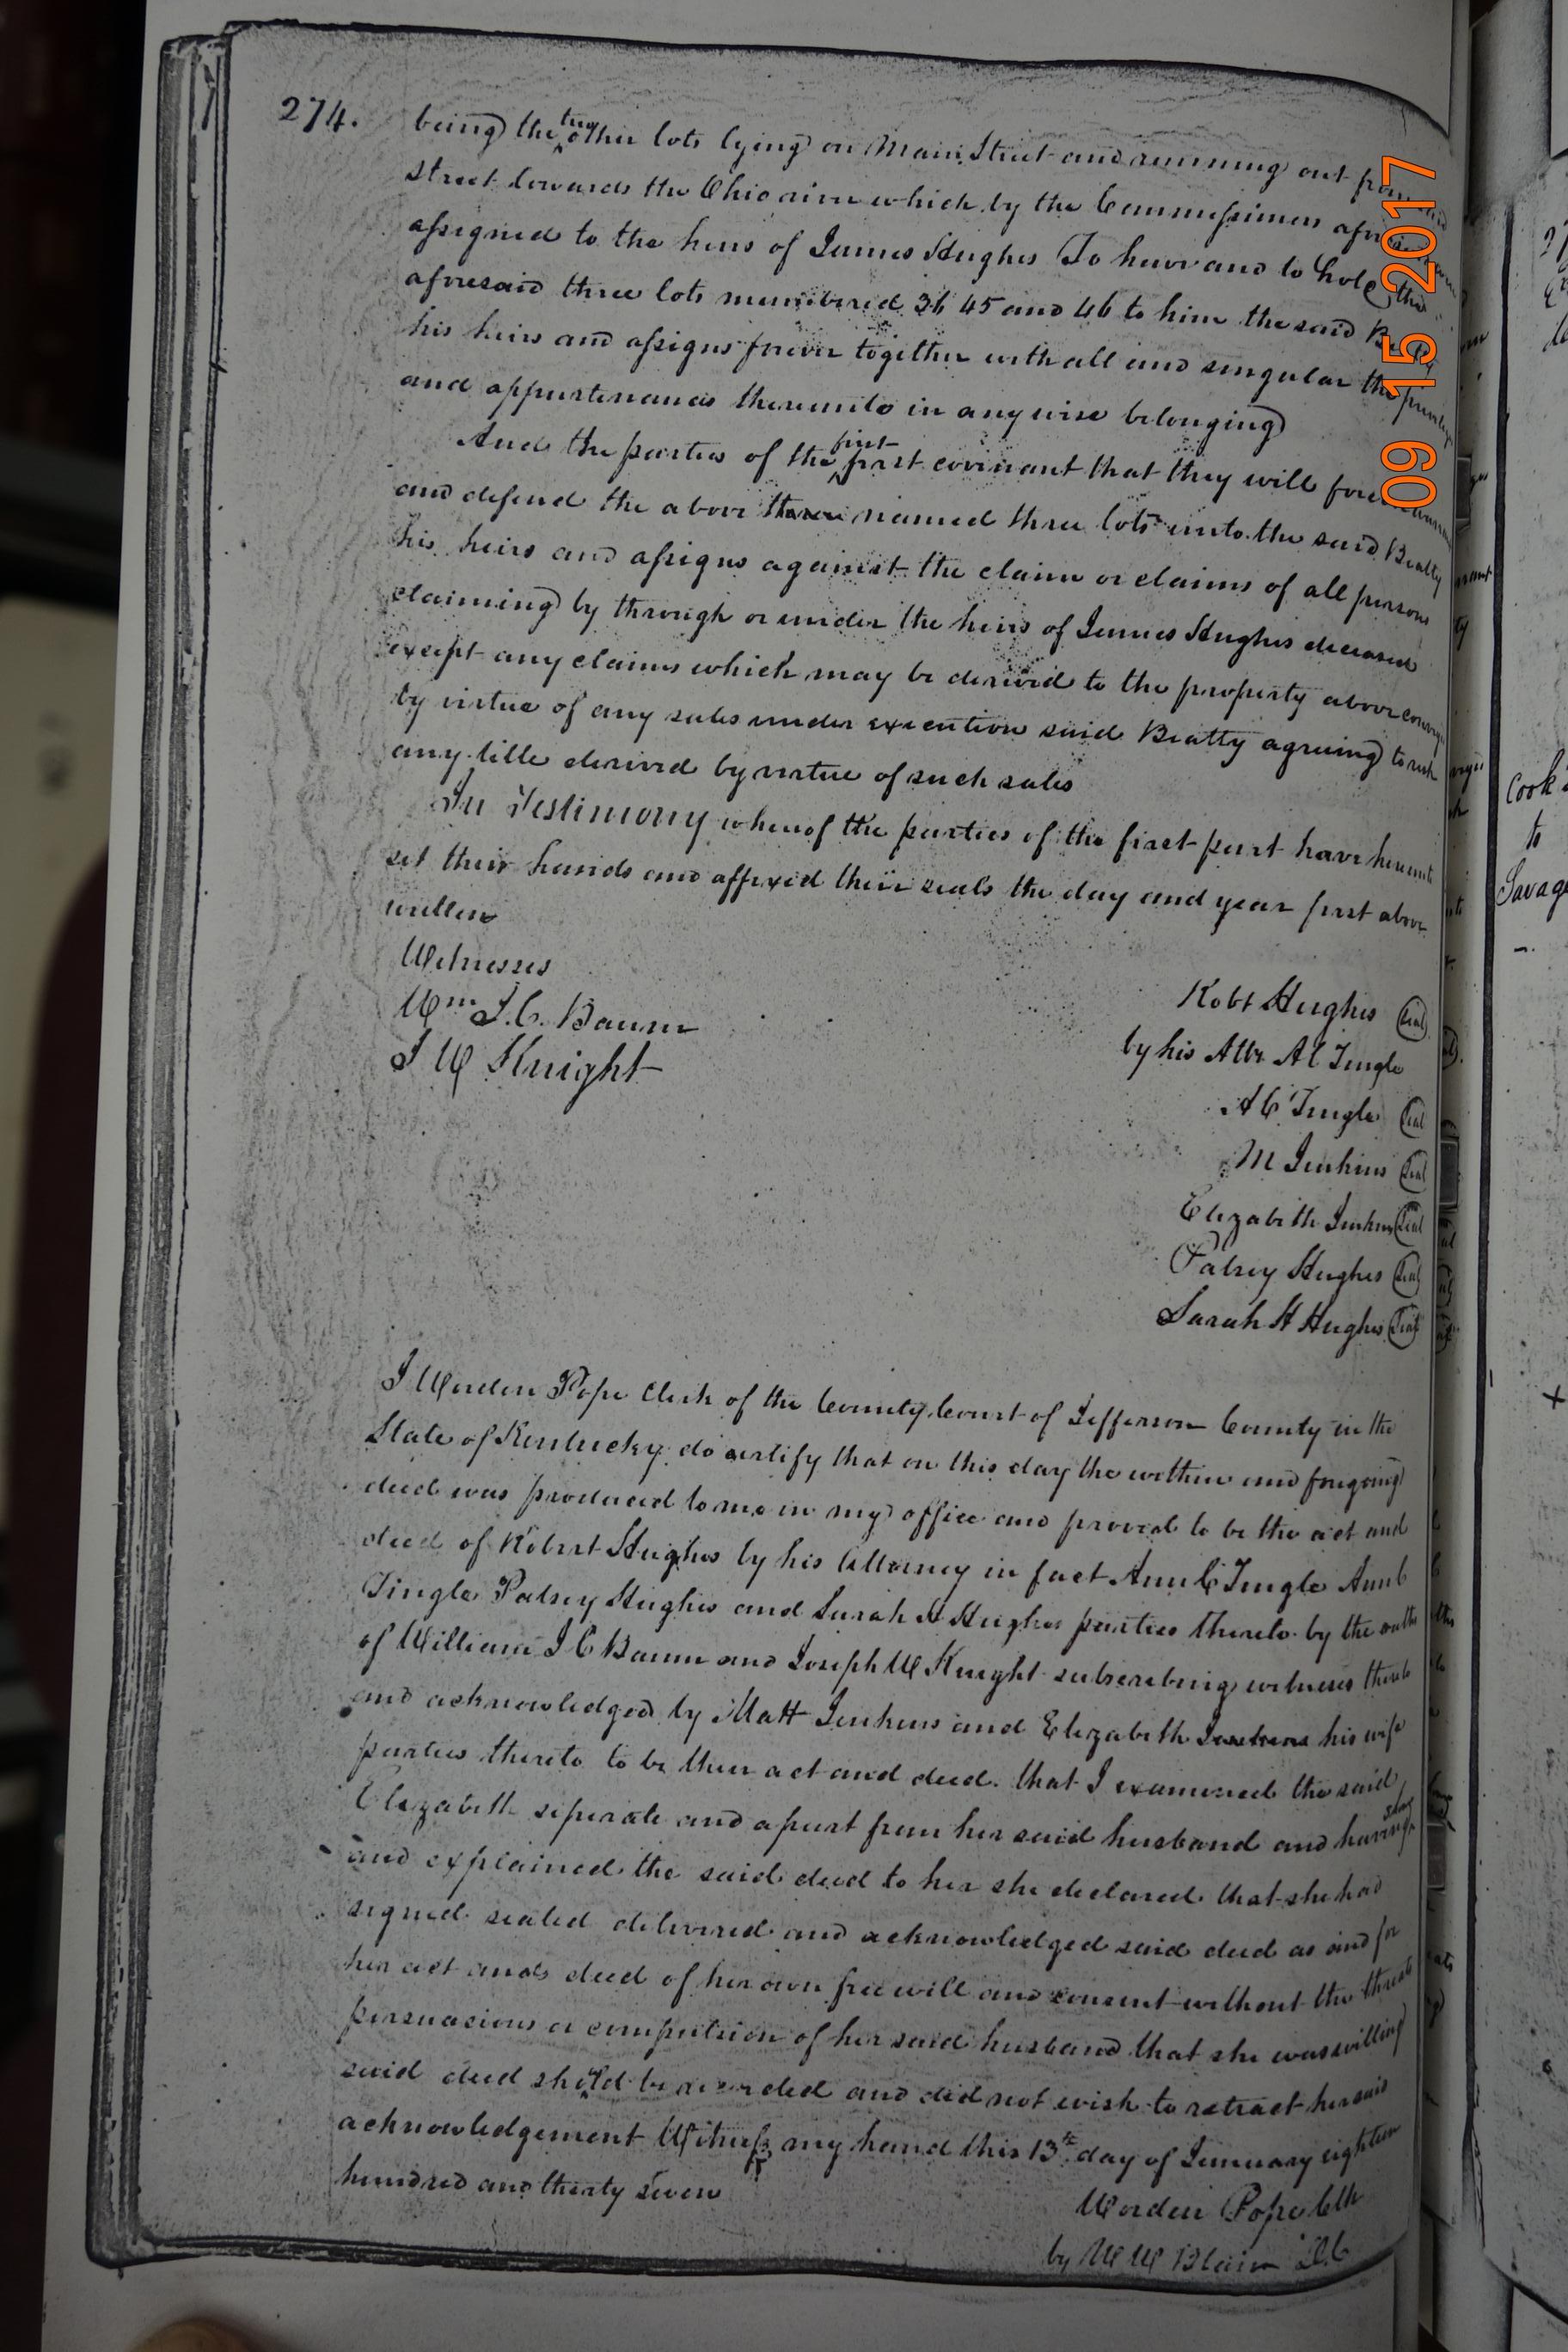 274.
being the two other lots lying on Main Street and running out from said
street towards the Ohio river which by the Commissioners aforesaid were
assigned to the heirs of James Hughes To have and to hold the
aforesaid three lots numbered 36 45 and 46 to him the said Beatty
his heirs and assigns forever together with all and singular the
and appurtenances thereunto in any wise belonging
And the parties of the first part covenant that they will forever
and defend the above three named three lots unto the said Beatty
his heirs and assigns against the claim or claims of all persons
claiming by through or under the heirs of James Hughes deceased
except any claims which may be derived to the property above
by virtue of any sales under execution said Beatty agreeing to risk
any title derived by virtue of such sales
In Testimony whereof the parties of the first part have hereunto
set their hands and affixed their seals the day and year first above
written
Witnesses
Wm I. C. Baunn
J W Knight
Robt Hughes Seal
by his Atty A C Tingle
A C Tingle Seal
M Jenkins Seal
Elizabeth Jenkins Seal
Patsey Hughes Seal
Sarah H Hughes Seal
I Worden Pope Clerk of the County Court of Jefferson County in the
State of Kentucky do certify that on this day the within and foregoing
deed was produced to me in my office and proved to be the act and
deed of Robert Hughes by his Attorney in fact Ann C Tingle Ann C
Tingle Patsey Hughes and Sarah H Hughes parties thereto by the oaths
of William I C Baunn and Joseph W Knight subscribing witnesses thereto
and acknowledged by Matt Jenkins and Elizabeth Jenkins his wife
parties thereto to be their act and deed. that I examined the said
Elizabeth seperate and apart from her said husband and having shown
and explained the said deed to her she declared that she had
signed sealed delivered and acknowledged said deed as and for
her act and deed of her own free will and consent without the threats
persuasions or compulsion of her said husband that she was willing
said deed should be recorded and did not wish to retract her said
acknowledgement Witness my hand this 13th day of January eighteen
hundred and thirty seven
Worden Pope Clk
by W W Blain D.C
Cook
to
Savage
09 15 2017